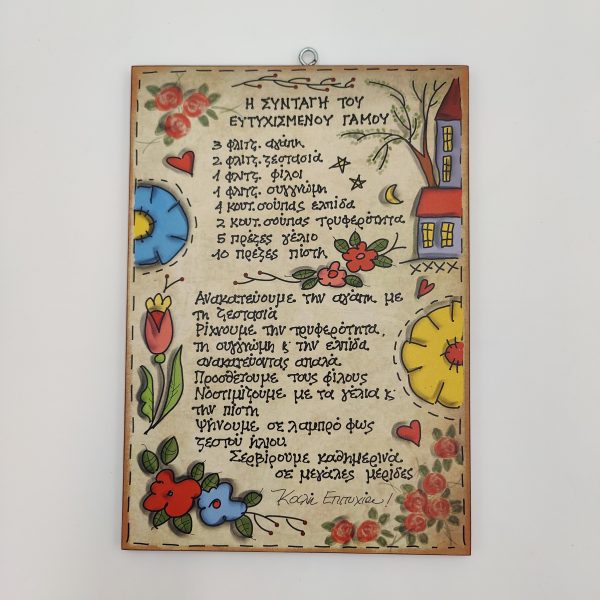 Η ΣΥΝΤΑΓΗ ΤΟΥ
ΕΥΤΥΧΙΣΜΕΝΟΥ ΓΑΜΟΥ
3 φλιτζ. αγάπη
2 φλιτζ. ζεστασιά
1 φλιτζ. φίλοι
1 φλιτζ. συγγνώμη
4 κουτ. σούπας ελπίδα
2 κουτ. σούπας τρυφερότητα
5 πρέζες γέλιο
10 πρέζες πίστη
Ανακατεύουμε την αγάπη με
τη ζεστασιά
Ρίχνουμε την τρυφερότητα,
τη συγγνώμη κ' την ελπίδα
ανακατεύοντας απαλά
Προσθέτουμε τους φίλους
Νοστιμίζουμε με τα γέλια κ'
την πίστη
Ψήνουμε σε λαμπρό φως
ζεστού ήλιου
Σερβίρουμε καθημερινά
σε μεγάλες μερίδες
Καλή Επιτυχία!